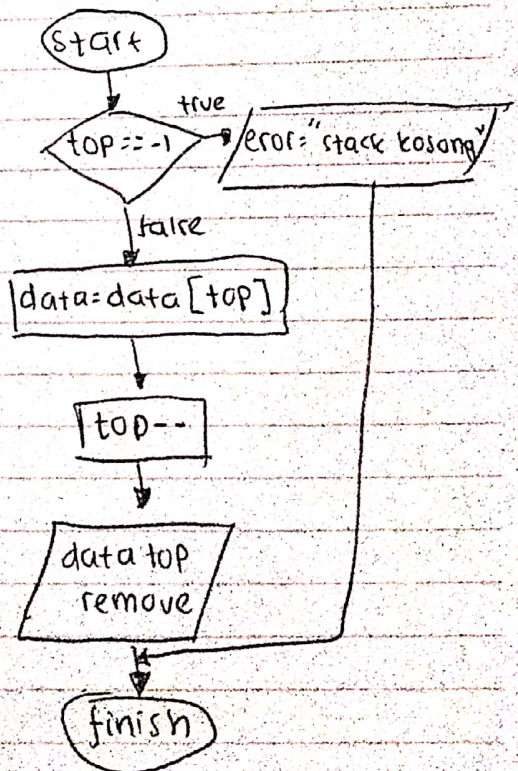 start
true
top == -1
eror = "stack kosong"
false
data = data [top]
top--
data top
remove
finish